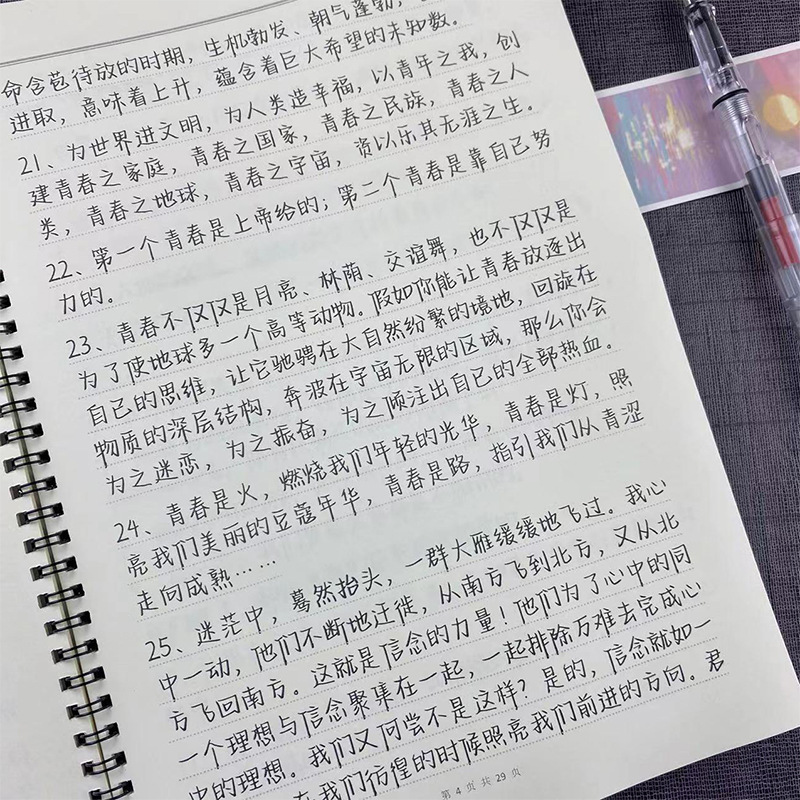 命含苞待放的时期，生机勃发、朝气蓬勃，
进取，意味着上升，蕴含着巨大希望的未知数。
21、为世界进文明，为人类造幸福，以青年之我，创
建青春之家庭，青春之国家，青春之民族，青春之人
类，青春之地球，青春之宇宙，资以乐其无涯之生。
22、第一个青春是上帝给的；第二个青春是靠自己努
力的。
23、青春不仅仅是月亮、林荫、交谊舞，也不仅仅是
为了使地球多一个高等动物。假如你能让青春放逐出
自己的思维，让它驰骋在大自然纷繁的境地，回旋在
物质的深层结构，奔波在宇宙无限的区域，那么你会
为之迷恋，为之振奋，为之倾注出自己的全部热血。
24、青春是火，燃烧我们年轻的光华，青春是灯，照
亮我们美丽的豆蔻年华，青春是路，指引我们从青涩
走向成熟……
25、迷茫中，蓦然抬头，一群大雁缓缓地飞过。我心
中一动，他们不断地迁徙，从南方飞到北方，又从北
方飞回南方。这就是信念的力量！他们为了心中的同
一个理想与信念聚集在一起，一起排除万难去完成心
中的理想。我们又何尝不是这样？是的，信念就如一
我们彷徨的时候照亮我们前进的方向。君
第 4 页 共 29 页